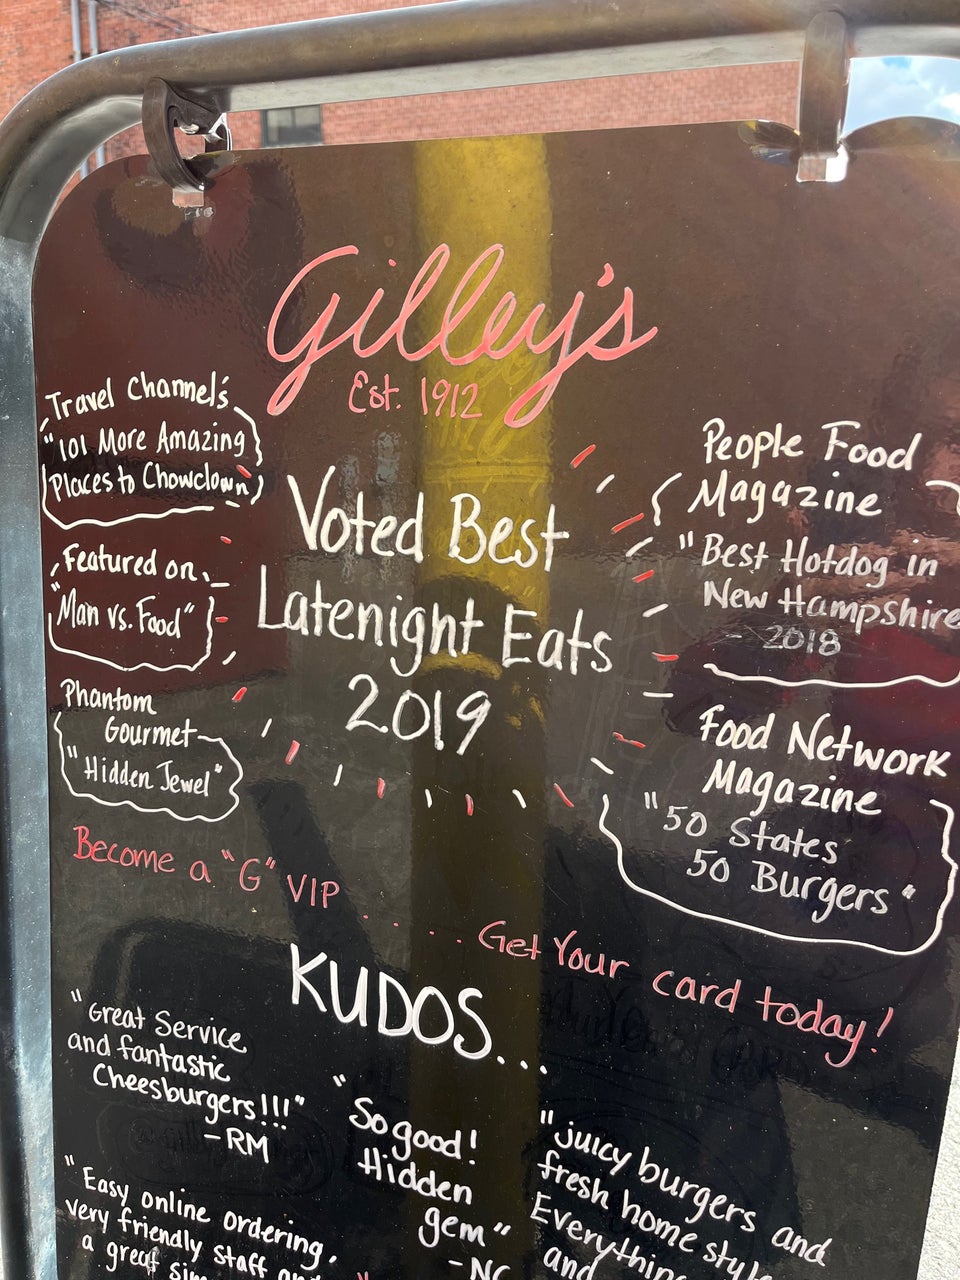 Gilley's
Est. 1912
Travel Channel's
"101 More Amazing
Places to Chowdown"
Featured on
"Man vs. Food"
Phantom
Gourmet
"Hidden Jewel"
Voted Best
Latenight Eats
2019
People Food
Magazine
"Best Hotdog in
New Hampshire
2018
Food Network
Magazine
"50 States
50 Burgers"
Become a "G" VIP .... Get Your card today!
KUDOS...
"Great Service
and fantastic
Cheesburgers!!!"
-RM
"Easy online ordering,
very friendly staff and
a great
"So good!
Hidden
gem"
- NC
"juicy burgers and
fresh home
Everything
and